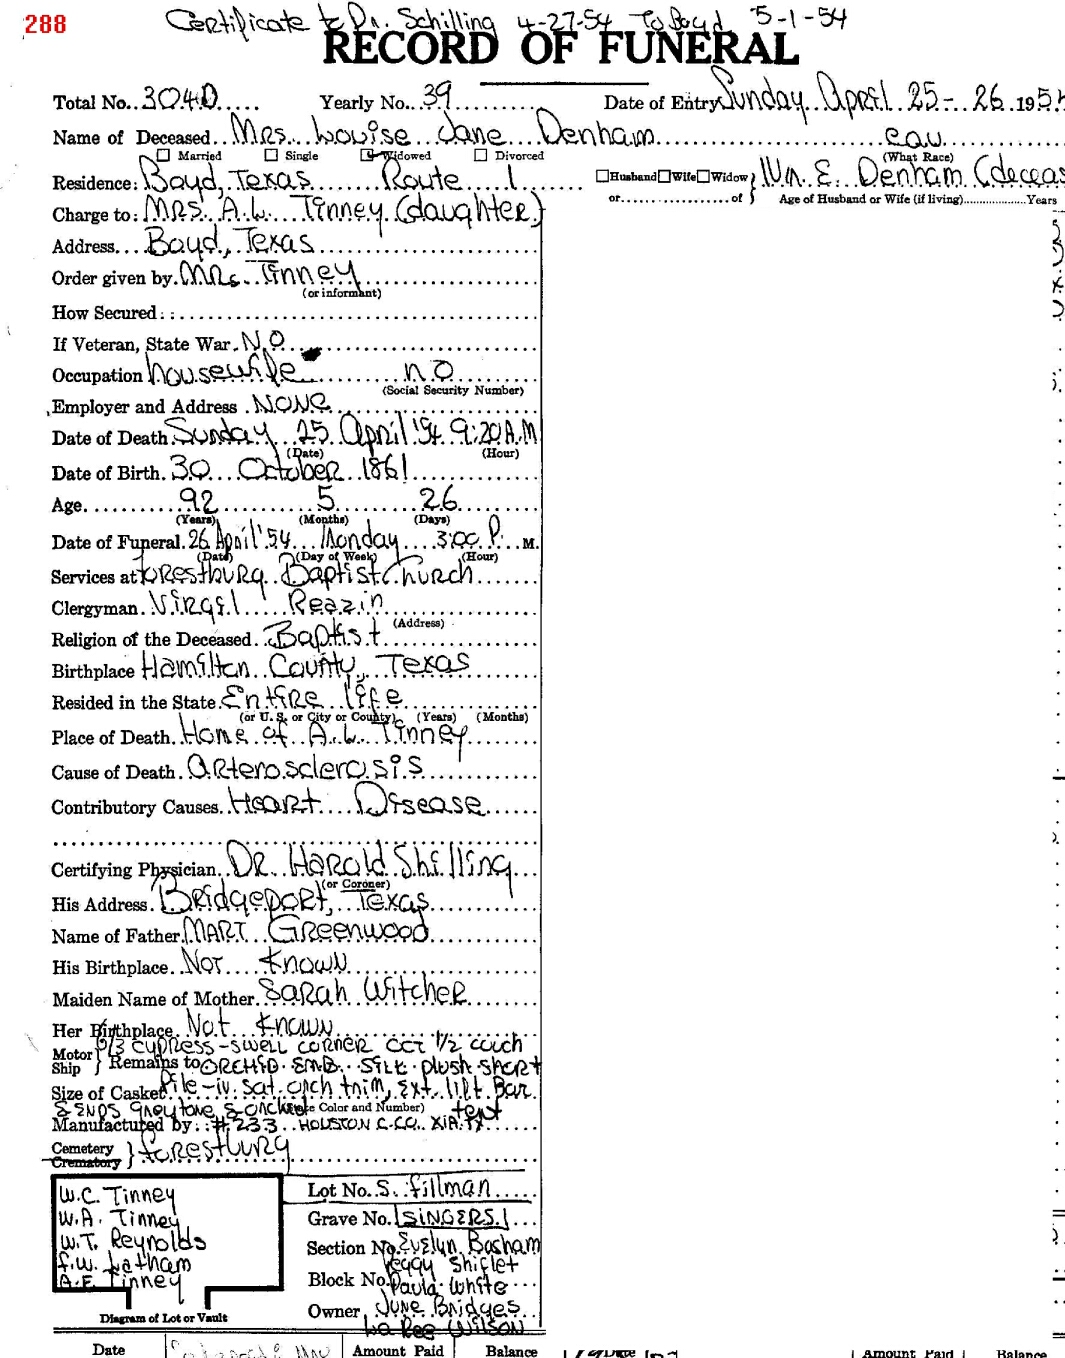 288
Certificate to Dr. Schilling 4-27-54 To Boyd 5-1-54
RECORD OF FUNERAL
Total No. 3040 Yearly No. 39 Date of Entry Sunday April 25-26 195
Name of Deceased Mrs. Louise Jane Denham cau
Married Single Widowed Divorced (What Race)
Residence: Boyd, Texas Route 1 Husband Wife Widow } Wm. E. Denham (deceas
or of } Age of Husband or Wife (if living) Years
Charge to: Mrs. A.L. Tinney (daughter)
Address Boyd, Texas
Order given by Mrs. Tinney
(or informant)
How Secured:
If Veteran, State War. No
Occupation housewife no
(Social Security Number)
Employer and Address None
Date of Death Sunday 25 April '54 9:20 A.M
(Date) (Hour)
Date of Birth 30 October 1861
Age 92 5 26
(Years) (Months) (Days)
Date of Funeral 26 April '54 Monday 3:00 P. M.
(Date) (Day of Week) (Hour)
Services at Forestburg Baptist Church
Clergyman Virgil Reazin
(Address)
Religion of the Deceased Baptist
Birthplace Hamilton County, Texas
Resided in the State Entire life
(or U. S. or City or County) (Years) (Months)
Place of Death Home of A.L. Tinney
Cause of Death arterosclerosis
Contributory Causes Heart Disease
Certifying Physician Dr. Harold Shilling
(or Coroner)
His Address Bridgeport, Texas
Name of Father Mart Greenwood
His Birthplace Not Known
Maiden Name of Mother Sarah Witcher
Her Birthplace Not Known
6/3 cypress-swell corner oct 1/2 couch
Motor Ship } Remains to orchid emb. silk plush short
Size of Casket Pile-iv. sat. orch trim, ext. lift Bar
& ends greytone & orchid (State Color and Number) tent
Manufactured by: #233 Houston C. Co.
Cemetery Crematory } Forestburg
W.C. Tinney
W.A. Tinney
W.T. Reynolds
F.W. Latham
A.F. Tinney
Diagram of Lot or Vault
Lot No. S. Fillman
Grave No. SINGERS
Section No. Evelyn Basham
Peggy Shiflet
Block No. Paula White
Owner June Bridges
La Ree Wilson
Date Amount Paid Balance Amount Paid Balance